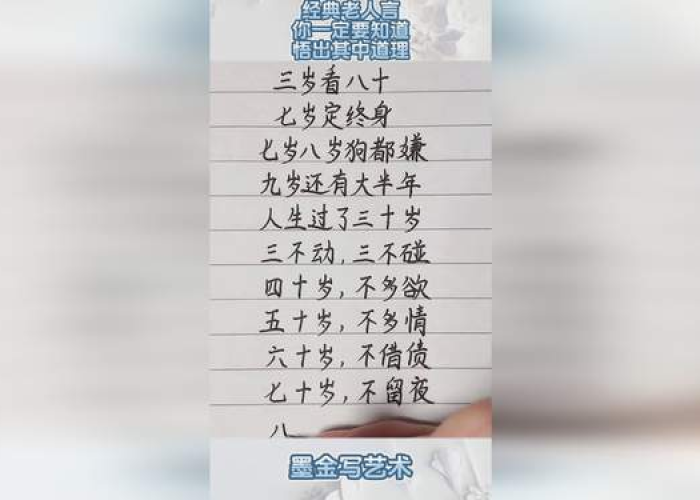 经典老人言
你一定要知道
悟出其中道理
三岁看八十
七岁定终身
七岁八岁狗都嫌
九岁还有大半年
人生过了三十岁
三不动,三不碰
四十岁,不多欲
五十岁,不多情
六十岁,不借债
七十岁,不留夜
八
墨金写艺术